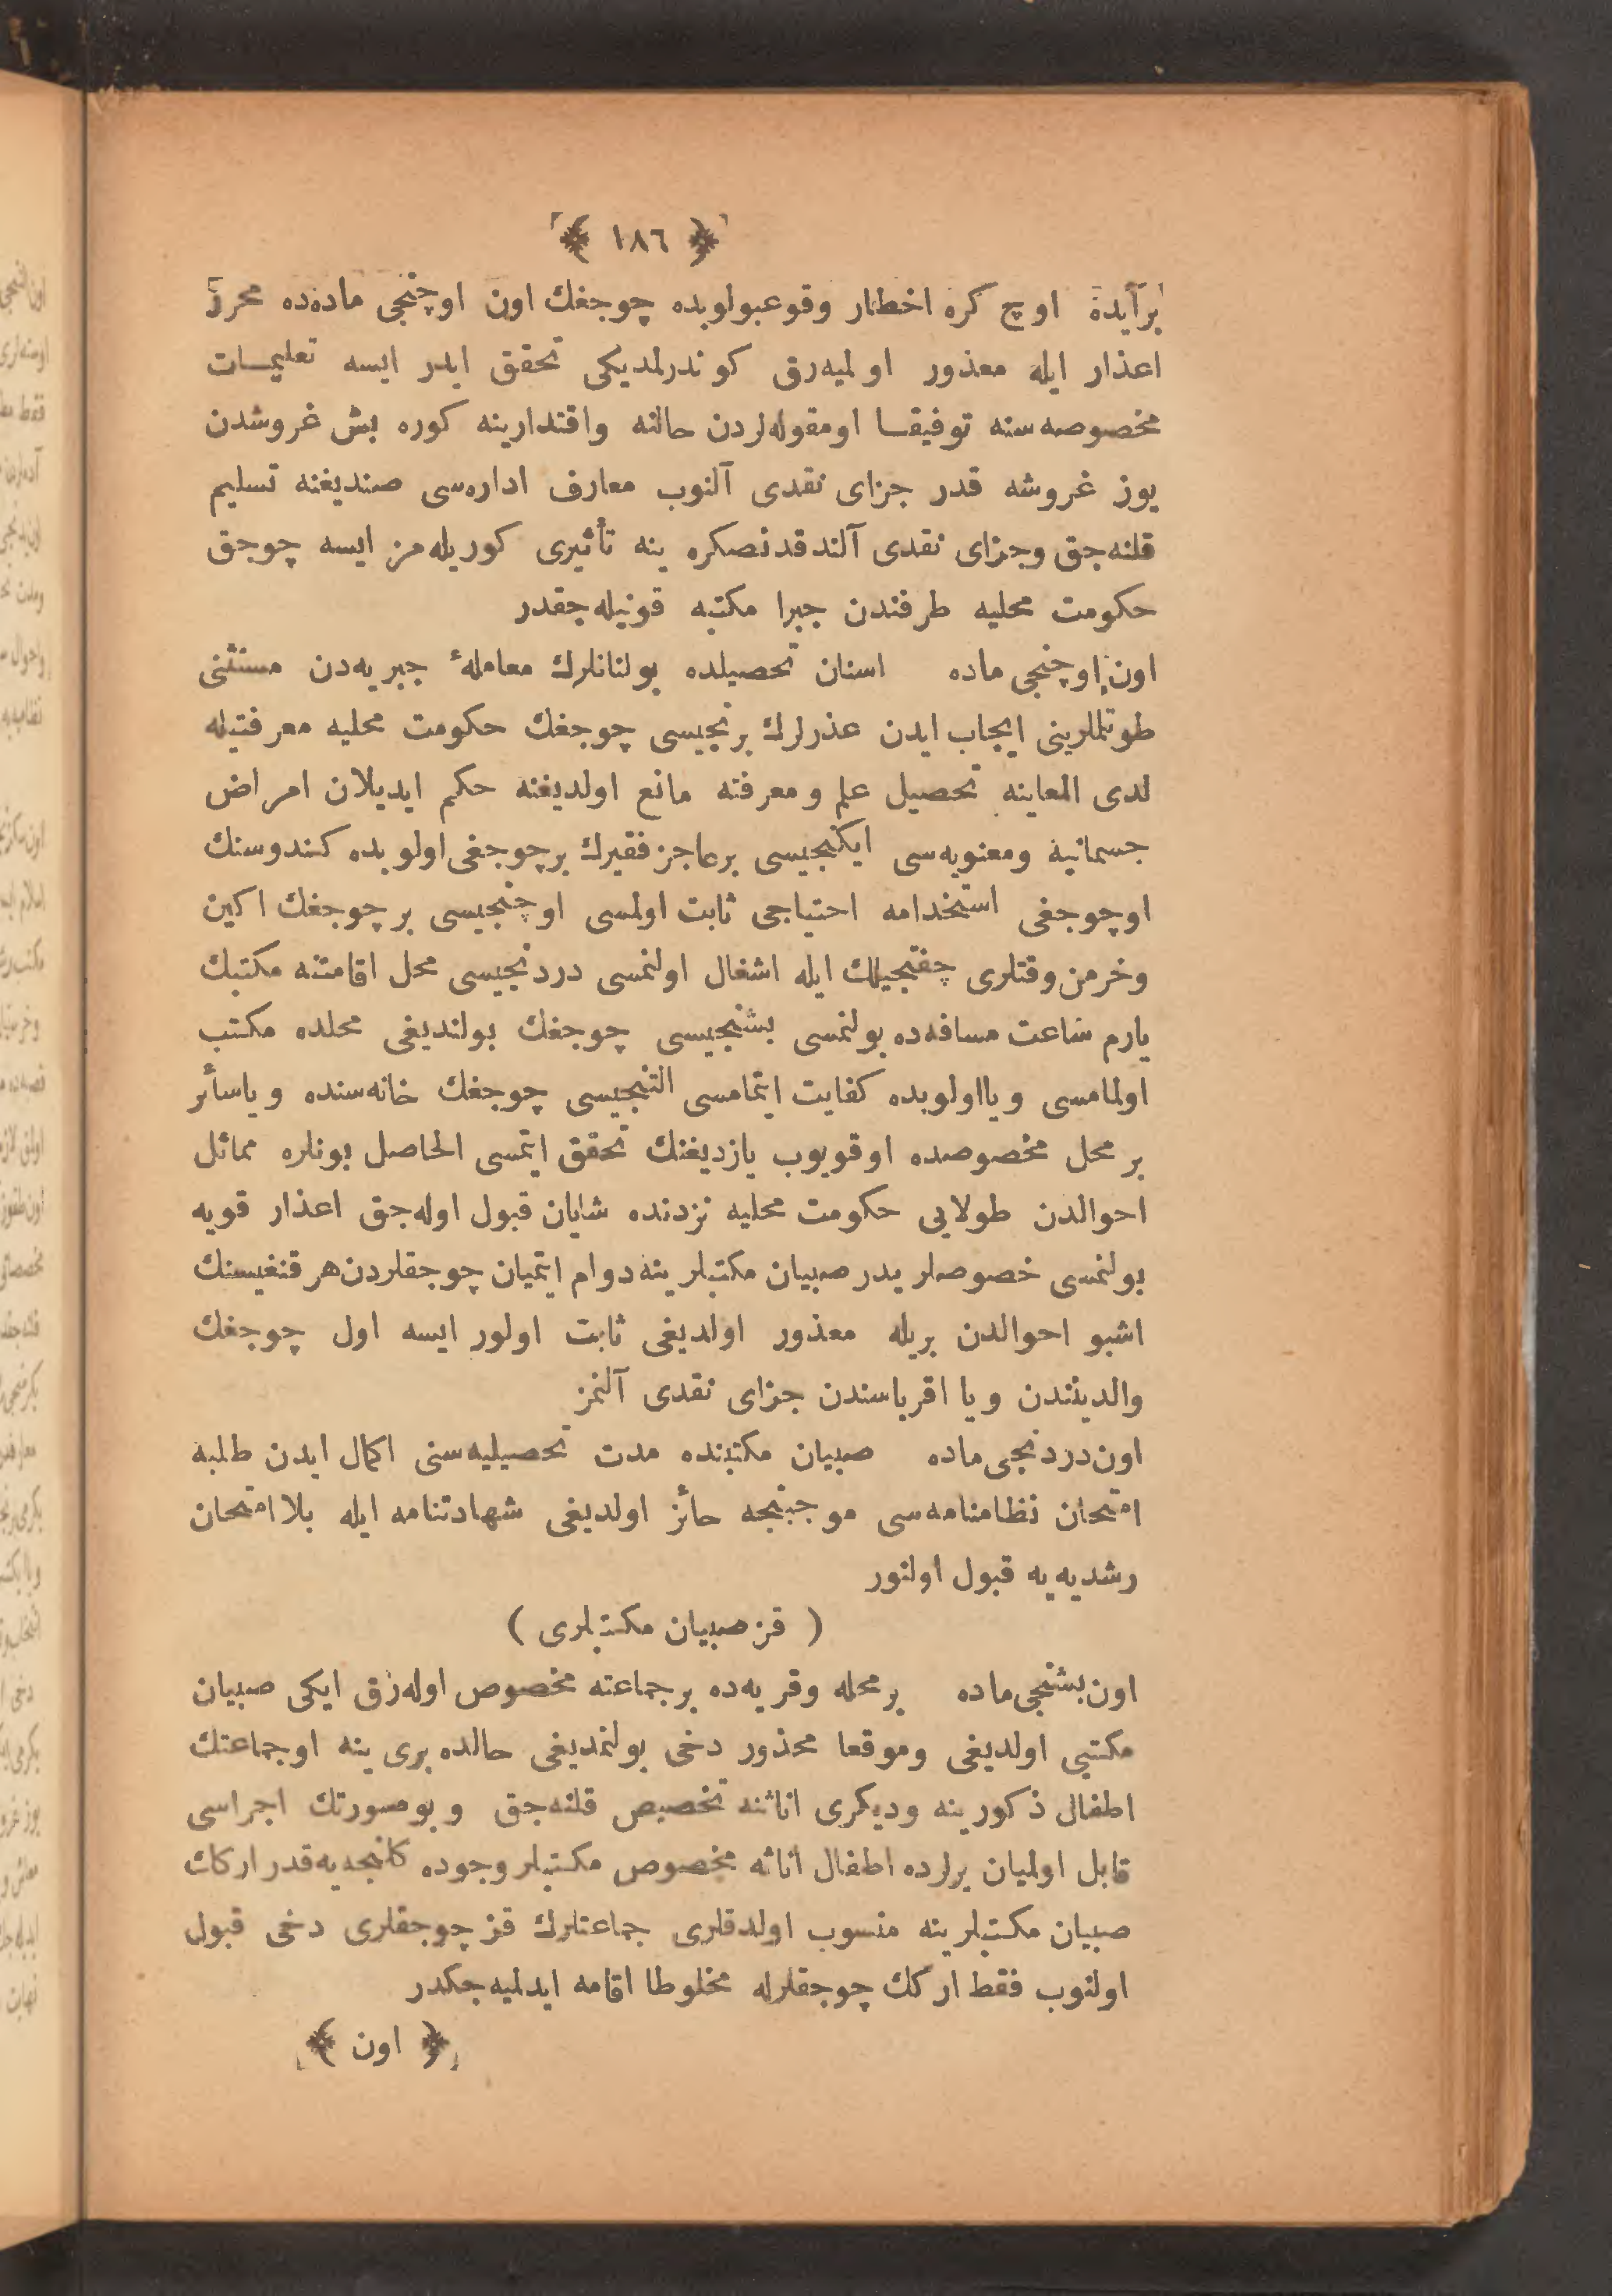 ﴿ ١٨٦ ﴾
برآیده اوچ کره اخطار وقوعبولوبده چوجغك اون اوچنجی ماده‌ده محرر
اعذار ایله معذور اولمیه‌رق کوندرلمدیکی تحقق ایدر ایسه تعلیمات
مخصوصه‌سنه توفیقا اومقوله‌لردن حالنه واقتدارینه کوره بش غروشدن
یوز غروشه قدر جزای نقدی آلنوب معارف اداره‌سی صندیغنه تسلیم
قلنه‌جق وجزای نقدی آلندقدنصکره ینه تأثیری کوریله‌مز ایسه چوجق
حکومت محلیه طرفندن جبرا مکتبه قونیله‌جقدر
اون اوچنجی ماده اسنان تحصیلده بولنانلرك معاملهٔ جبریه‌دن مستثنی
طوتملرینی ایجاب ایدن عذرلرك برنجیسی چوجغك حکومت محلیه معرفتیله
لدی المعاینه تحصیل علم و معرفته مانع اولدیغنه حکم ایدیلان امراض
جسمانیه ومعنویه‌سی ایکنجیسی برعاجز فقیرك برچوجغی اولوبده کندوسنك
اوچوجغی استخدامه احتیاجی ثابت اولمسی اوچنجیسی برچوجغك اکین
وخرمن وقتلری چفتجیلك ایله اشغال اولنمسی دردنجیسی محل اقامتنه مکتبك
یارم ساعت مسافه‌ده بولنمسی بشنجیسی چوجغك بولندیغی محلده مکتب
اولمامسی ویا اولوبده کفایت ایتمامسی التنجیسی چوجغك خانه‌سنده ویاسأر
برمحل مخصوصده اوقویوب یازدیغنك تحقق ایتمسی الحاصل بونلره مماثل
احوالدن طولایی حکومت محلیه نزدنده شایان قبول اوله‌جق اعذار قویه
بولنمسی خصوصلریدر صبیان مکتبلرینه دوام ایتمیان چوجقلردن هرقنغیسنك
اشبو احوالدن بریله معذور اولدیغی ثابت اولور ایسه اول چوجغك
والدیتندن ویا اقرباسندن جزای نقدی آلنمز
اون‌دردنجی ماده صبیان مکتبنده مدت تحصیلیه‌سنی اکمال ایدن طلبه
امتحان نظامنامه‌سی موجبنجه حائز اولدیغی شهادتنامه ایله بلا امتحان
رشدیه‌یه قبول اولنور
( قز صبیان مکتبلری )
اون‌بشنجی ماده برمحله وقریه‌ده برجماعته مخصوص اوله‌رق ایکی صبیان
مکتبی اولدیغی وموقعا محذور دخی بولنمدیغی حالده بری ینه اوجماعتك
اطفال ذکورینه ودیکری اناثنه تخصیص قلنه‌جق و بوصورتك اجراسی
قابل اولمیان یرلرده اطفال اناثه مخصوص مکتبلر وجوده کلنجه‌یه‌قدر ارکك
صبیان مکتبلرینه منسوب اولدقلری جماعتلرك قز چوجقلری دخی قبول
اولنوب فقط ارکك چوجقلرله مخلوطا اقامه ایدلمیه‌جکدر
﴿ اون ﴾